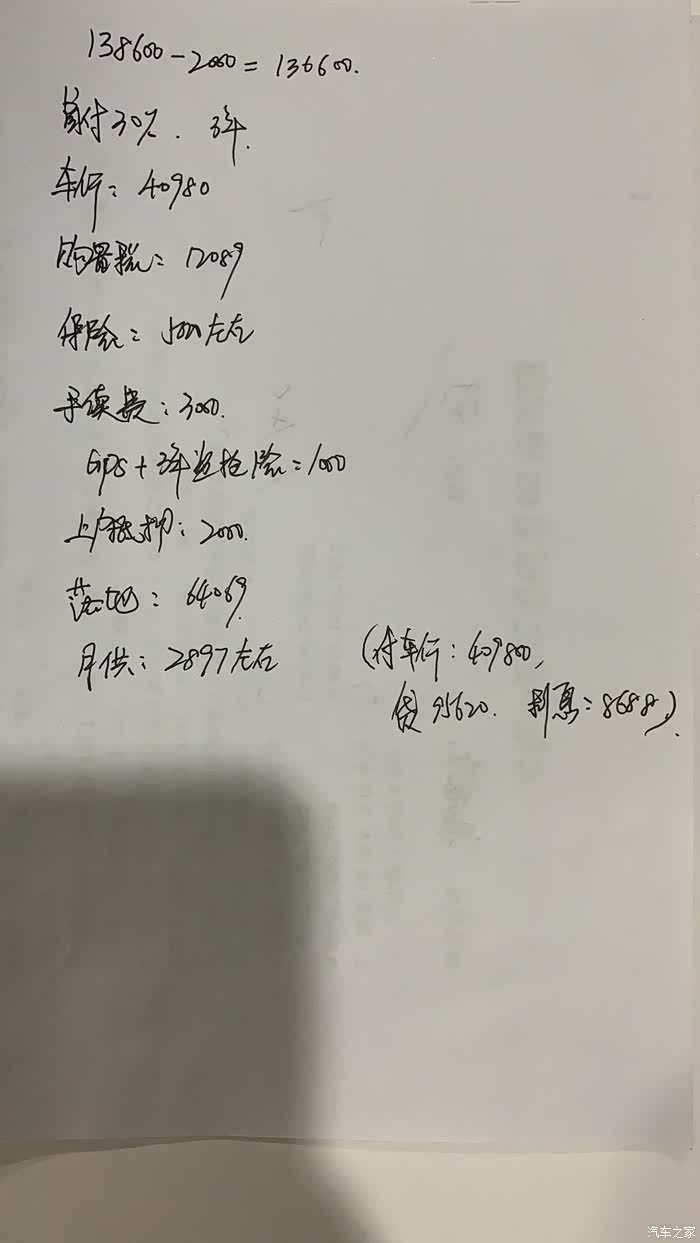 138600-2000=136600.
首付30%. 3年.
车行:40980
购置税:12089
保险:5000左右
手续费:3000.
GPS+3年盗抢险=1000
上户抵押:2000.
落地:64069
月供:2897左右
(付车行:409800,
贷95620. 利息:8688).
汽车之家